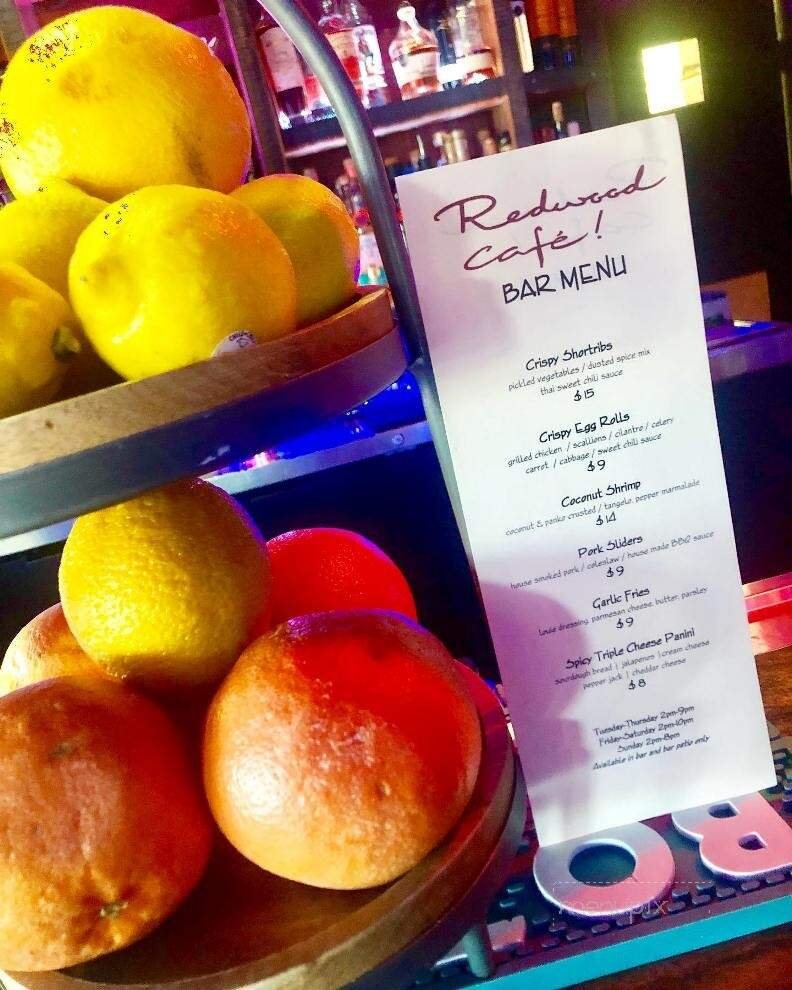 Redwood
café!
BAR MENU
Crispy Shortribs
pickled vegetables / dusted spice mix
thai sweet chili sauce
$15
Crispy Egg Rolls
grilled chicken / scallions / cilantro / celery
carrot / cabbage / sweet chili sauce
$9
Coconut Shrimp
coconut & panko crusted / tangelo, pepper marmalade
$14
Pork Sliders
house smoked pork / coleslaw / house made BBQ sauce
$9
Garlic Fries
louie dressing, parmesan cheese, butter, parsley
$9
Spicy Triple Cheese Panini
sourdough bread | jalapenos | cream cheese
pepper jack | cheddar cheese
$8
Tuesday-Thursday 2pm-9pm
Friday-Saturday 2pm-10pm
Sunday 2pm-8pm
Available in bar and bar patio only
menupix